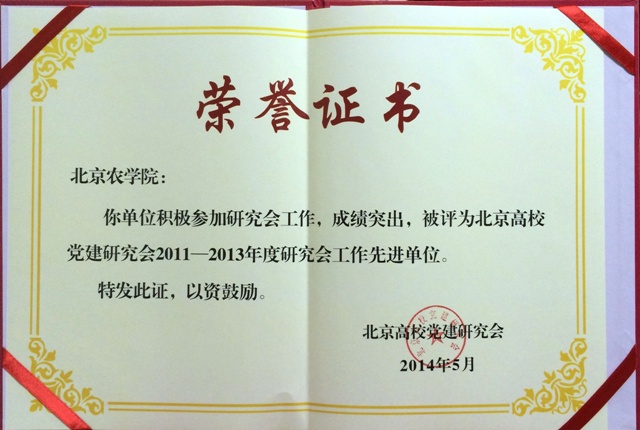 荣誉证书
北京农学院：
你单位积极参加研究会工作，成绩突出，被评为北京高校
党建研究会2011—2013年度研究会工作先进单位。
特发此证，以资鼓励。
北京高校党建研究会
2014年5月